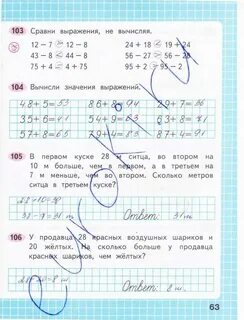 103 Сравни выражения, не вычисляя.
12 – 7 > 12 – 8 24 + 18 < 19 + 24
43 – 8 < 44 – 8 56 – 27 < 56 – 26
75 + 4 < 75 + 7 95 + 2 > 95 – 2
104 Вычисли значения выражений.
48+5=53 86+8=94 29+7=36
35+6=41 54+9=63 63+8=71
57+8=65 79+4=83 87+4=91
105 В первом куске 28 м ситца, во втором на
10 м больше, чем в первом, а в третьем на
7 м меньше, чем во втором. Сколько метров
ситца в третьем куске?
38-7=31 м Ответ: 31 м
106 У продавца 28 красных воздушных шариков и
20 жёлтых. На сколько больше у продавца
красных шариков, чем жёлтых?
28-20=8 ш Ответ: 8 ш.
63